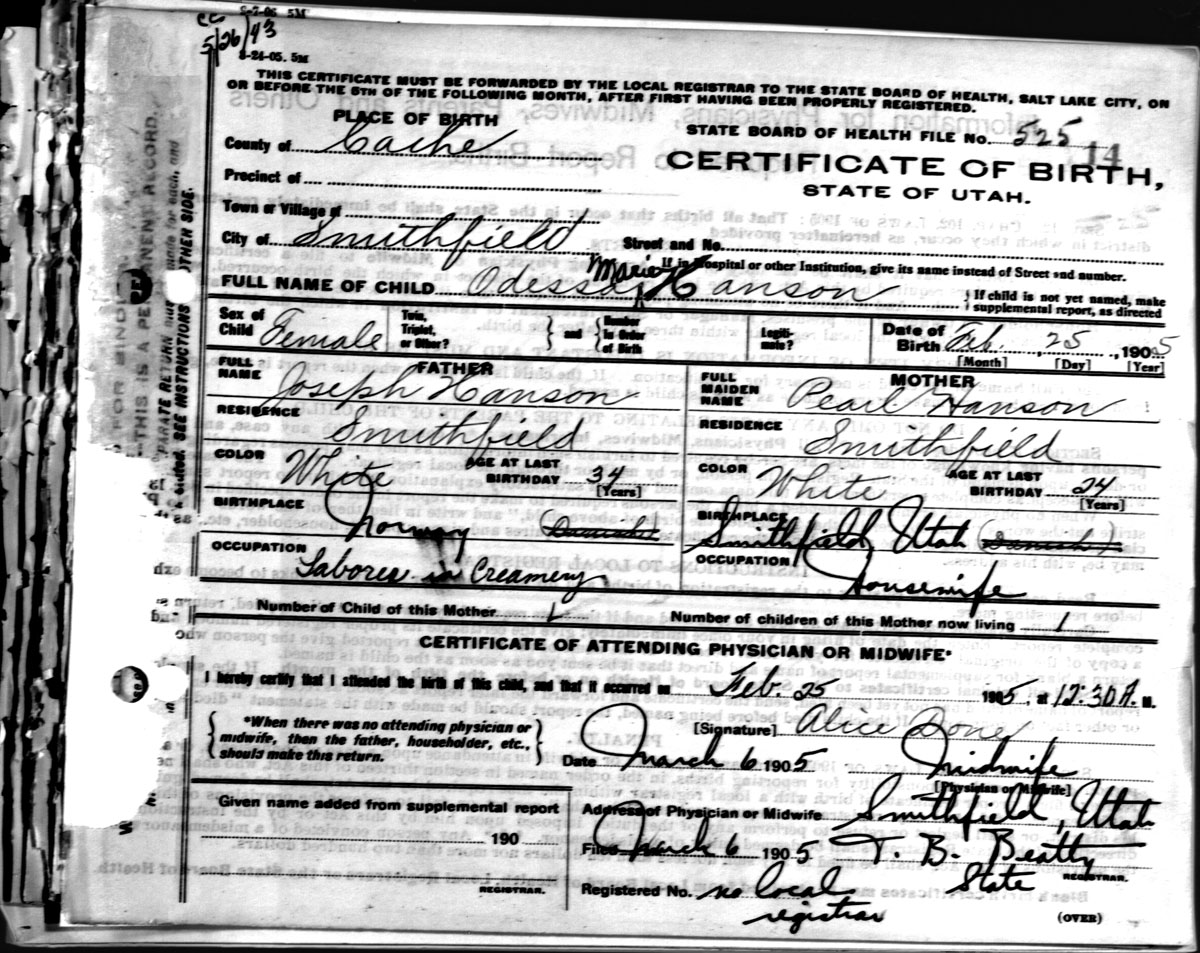 5/26/43
8-24-05. 5M
THIS CERTIFICATE MUST BE FORWARDED BY THE LOCAL REGISTRAR TO THE STATE BOARD OF HEALTH, SALT LAKE CITY, ON
OR BEFORE THE 5TH OF THE FOLLOWING MONTH, AFTER FIRST HAVING BEEN PROPERLY REGISTERED.
PLACE OF BIRTH
STATE BOARD OF HEALTH FILE No. 525 14
County of Cache
CERTIFICATE OF BIRTH,
STATE OF UTAH.
Precinct of
Town or Village of
City of Smithfield Street and No.
If in Hospital or other Institution, give its name instead of Street and number.
Marie
FULL NAME OF CHILD Odessa Hanson
If child is not yet named, make supplemental report, as directed
Sex of Child Female Twin, Triplet, or Other? and Number in Order of Birth Legitimate? Date of Birth Feb. 25, 1905
[Month] [Day] [Year]
FATHER
FULL NAME Joseph Hanson
RESIDENCE Smithfield
COLOR White AGE AT LAST BIRTHDAY 34 [Years]
BIRTHPLACE Norway (Danish)
OCCUPATION Laborer in Creamery
MOTHER
FULL MAIDEN NAME Pearl Hanson
RESIDENCE Smithfield
COLOR White AGE AT LAST BIRTHDAY 24 [Years]
BIRTHPLACE Smithfield, Utah (Danish)
OCCUPATION Housewife
Number of Child of this Mother 1 Number of children of this Mother now living 1
CERTIFICATE OF ATTENDING PHYSICIAN OR MIDWIFE*
I hereby certify that I attended the birth of this child, and that it occurred on Feb. 25 1905, at 12:30 A. M.
*When there was no attending physician or
midwife, then the father, householder, etc.,
should make this return.
[Signature] Alice Done
Date March 6 1905 Midwife
[Physician or Midwife]
Given name added from supplemental report
190
REGISTRAR.
Address of Physician or Midwife Smithfield, Utah
Filed March 6 1905 T. B. Beatty
State REGISTRAR.
Registered No. no local
registrar
(OVER)
SEE INSTRUCTIONS OTHER SIDE.
THIS IS A PERMANENT RECORD.